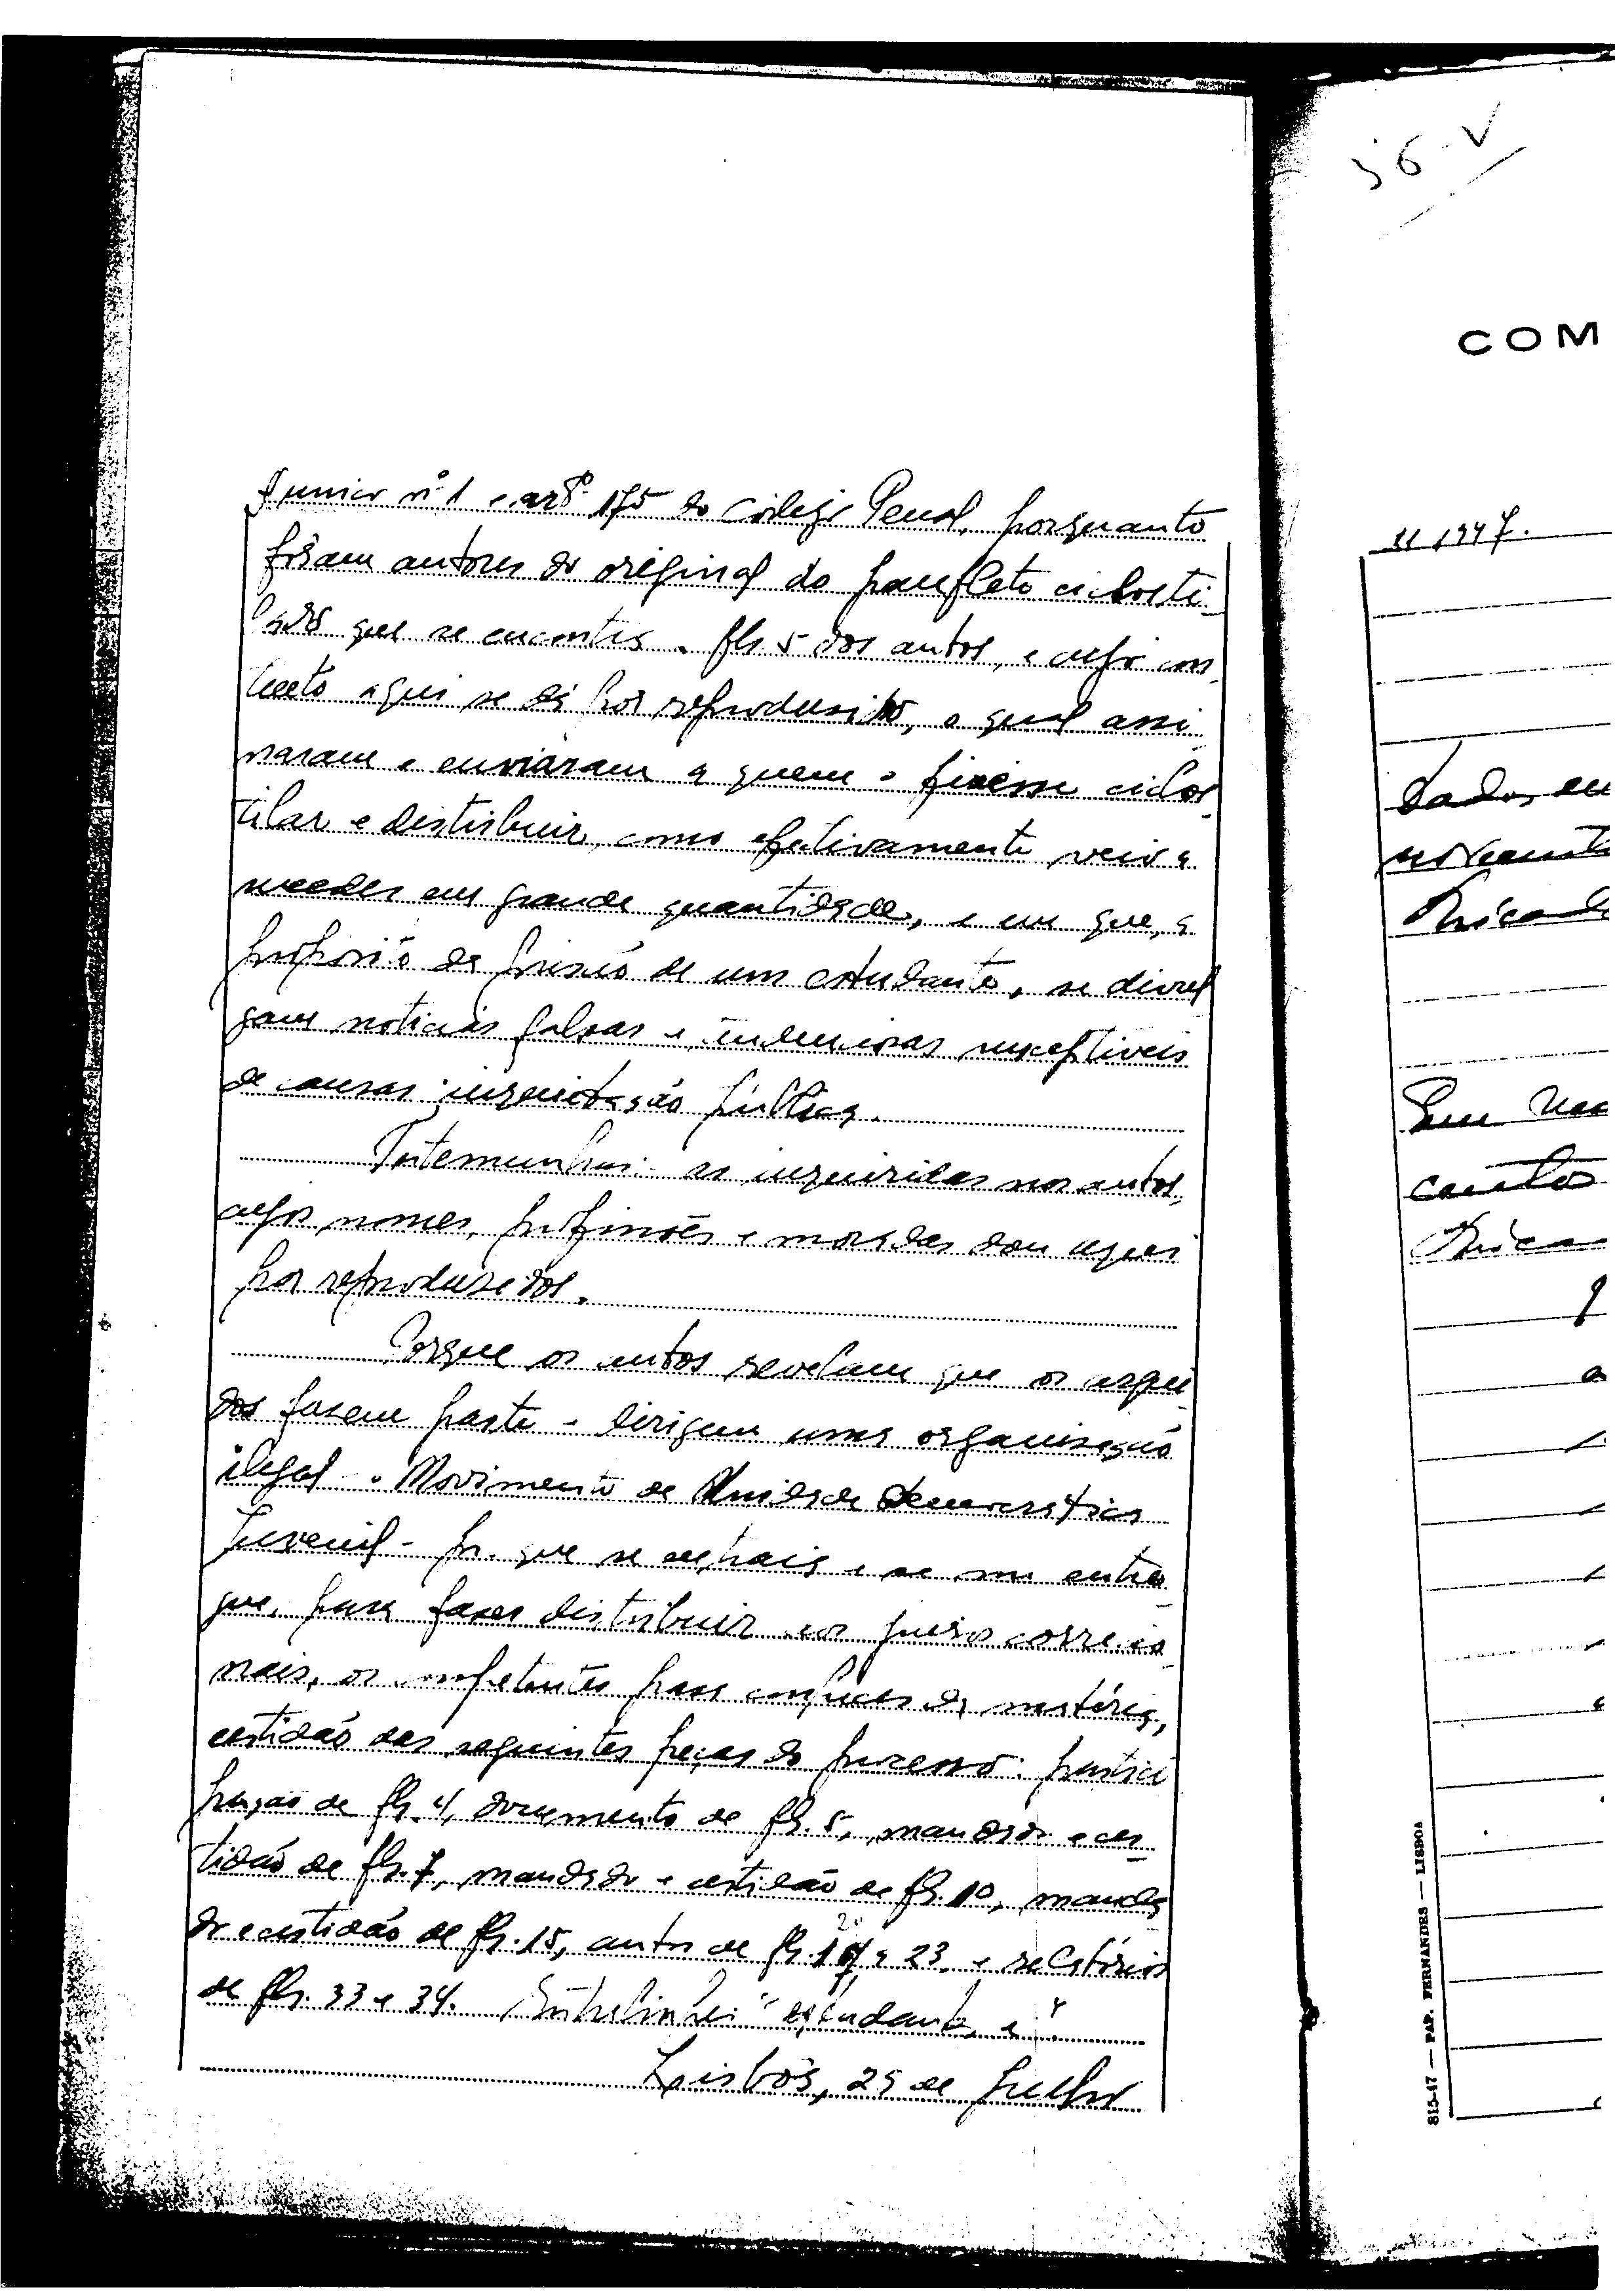 Junior nº 1 e artº 175 do Código Penal, porquanto
foram autores do original do panfleto ciclosti-
lado que se encontra a fls. 5 dos autos, e cujo con-
teúto aqui se dá por reproduzido, o qual assi-
naram e enviaram a quem o fizesse ciclos-
tilar e distribuir, como efetivamente veio a
suceder em grande quantidade, e em que, a
propósito da prisão de um estudante, se divul-
gam noticias falsas e tendenciosas susceptiveis
de causar inquietação pública.
Testemunhas: as inquiridas nos autos,
cujos nomes, profissões e moradas dou aqui
por reproduzidos.
Porque os autos revelam que os argui-
dos fazem parte e dirigem uma organização
ilegal - o Movimento de Unidade Democrática
Juvenil - pr. que se extraia e se me entre-
gue, para fazer distribuir aos juizos correcio-
nais, os competentes para conhecer da matéria,
certidão das seguintes peças do processo: partici-
pação de fls. 4, documento de fls. 5, mandado e cer-
tidão de fls. 7, mandado e certidão de fls. 10, manda-
do e certidão de fls. 15, autos de fls. 20 a 23 e relatórios
de fls. 33 e 34. Entrelinhei "estudante, e".
Lisboa, 25 de Julho
56-V
COM
1947.
dados em
Sem
815-47 — PAP. FERNANDES — LISBOA